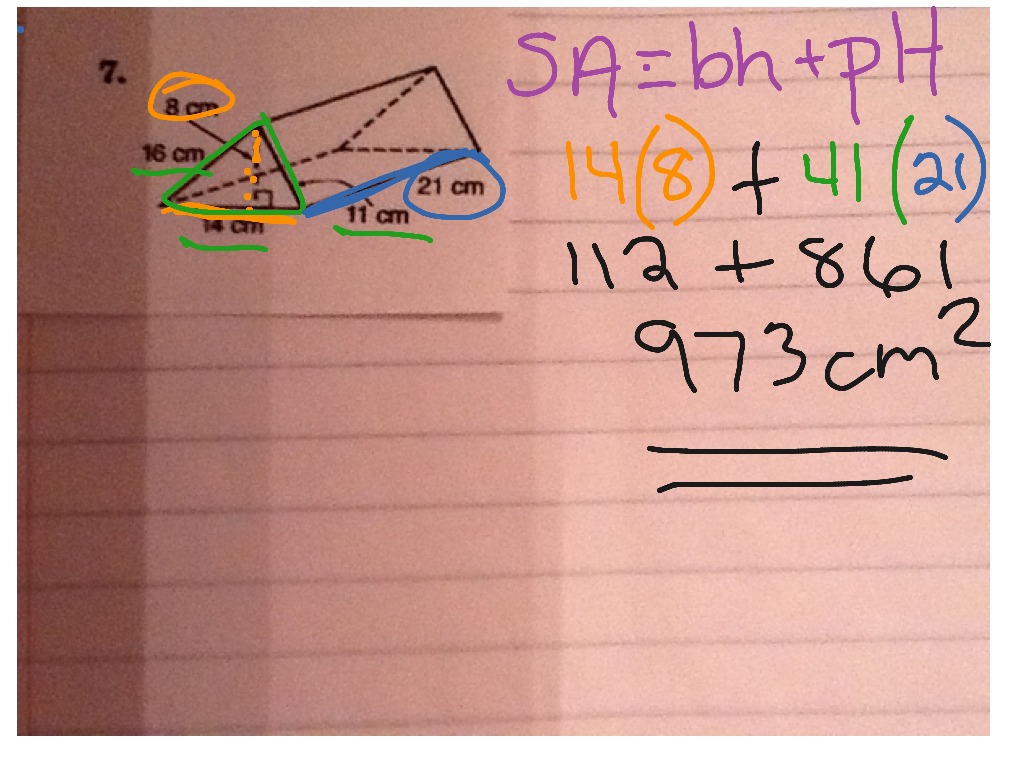 7.
8 cm
16 cm
21 cm
11 cm
14 cm
SA = bh + pH
14(8) + 41(21)
112 + 861
973 cm²